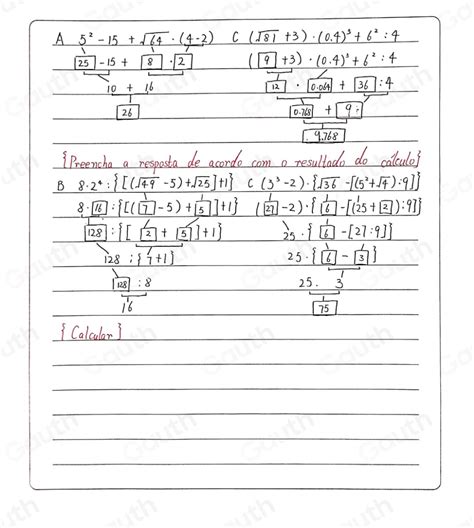 A 5² - 15 + √64 · (4-2)
25 - 15 + 8 · 2
10 + 16
26
C (√81 + 3) · (0.4)³ + 6² : 4
(9 + 3) · (0.4)³ + 6² : 4
12 · 0.064 + 36 : 4
0.768 + 9 :
9,768
{Preencha a resposta de acordo com o resultado do cálculo}
B 8·2⁴ : {[(√49 - 5) + √25] + 1}
8 · 16 : {[(7 - 5) + 5] + 1}
128 : {[ 2 + 5 ] + 1}
128 : {7 + 1}
128 : 8
16
C (3³ - 2) · {√36 - [(5² + √4) : 9]}
(27 - 2) · {6 - [(25 + 2) : 9]}
25 · {6 - [27 : 9]}
25 · {6 - 3}
25 . 3
75
{Calcular}